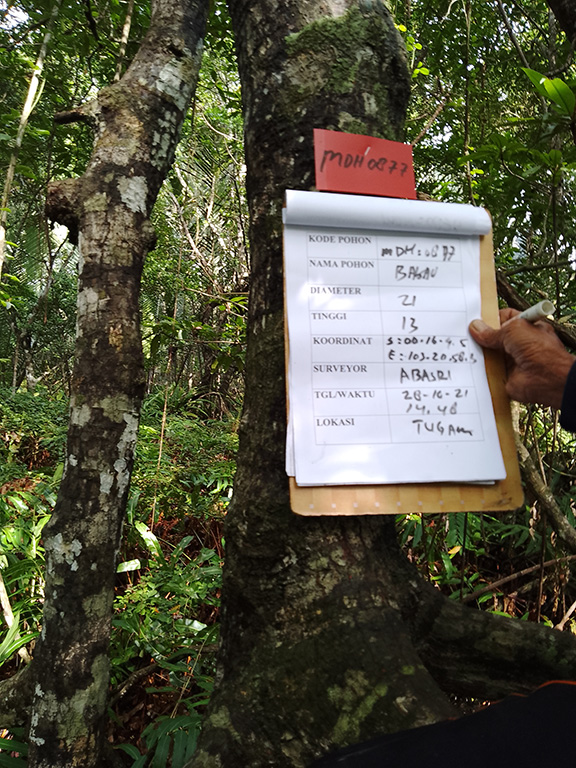 MDH 0877
KODE POHON MDH : 0877
NAMA POHON BAKAU
DIAMETER 21
TINGGI 13
KOORDINAT S : 00.16.4.5
E : 103.20.58.3
SURVEYOR ABASRI
TGL/WAKTU 28-10-21
14.48
LOKASI